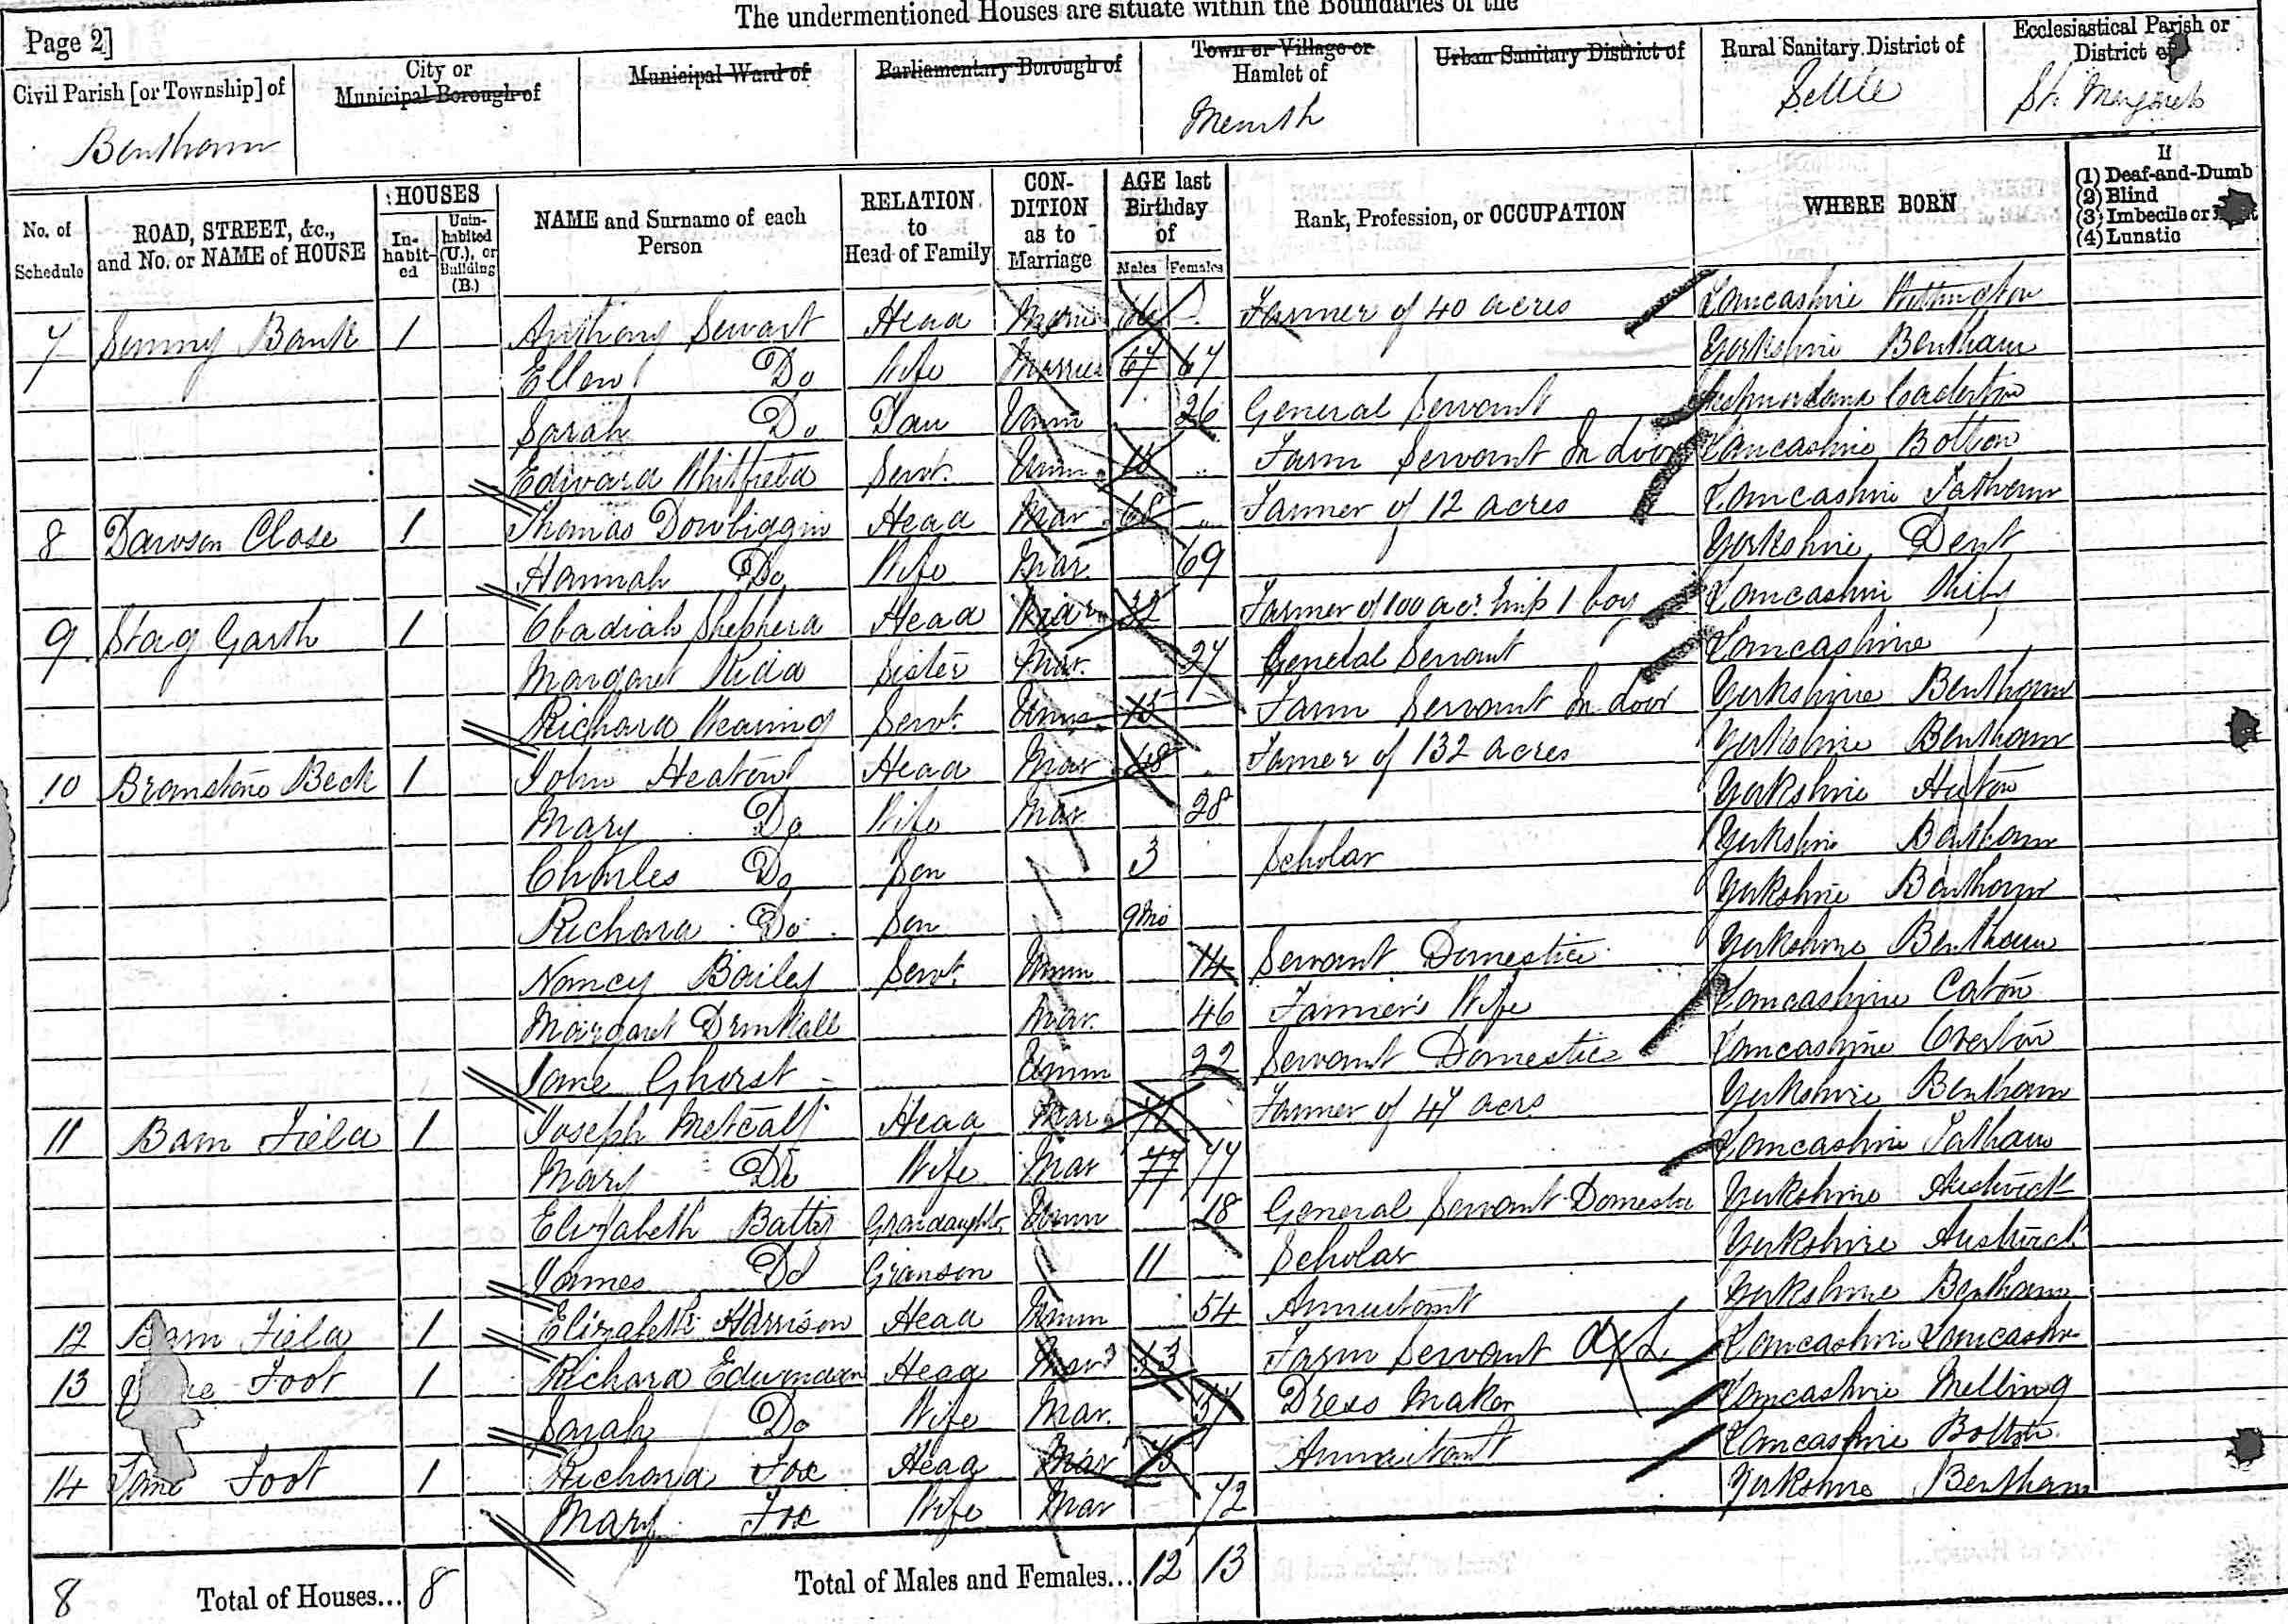 The undermentioned Houses are situate within the Boundaries of the
Page 2]
Civil Parish [or Township] of
Bentham
City or Municipal Borough of
Municipal Ward of
Parliamentary Borough of
Town or Village or Hamlet of
Urban Sanitary District of
Rural Sanitary District of
Settle
Ecclesiastical Parish or District of
St. Margrets
No. of Schedule
ROAD, STREET, &c., and No. or NAME of HOUSE
HOUSES
In-habit-ed
Unin-habited (U.), or Building (B.)
NAME and Surname of each Person
RELATION to Head of Family
CON-DITION as to Marriage
AGE last Birthday of
Males
Females
Rank, Profession, or OCCUPATION
WHERE BORN
If
(1) Deaf-and-Dumb
(2) Blind
(3) Imbecile or
(4) Lunatic
7 Sunny Bank 1 Anthony Sewart Head Farmer of 40 acres Lancashire
Ellen Do Wife Married 67 67 Yorkshire Bentham
Sarah Do Dau Unm 26 General Servant
Edward Whitfield Servt. Unm Farm Servant In door Lancashire Bolton
8 Dawson Close 1 Thomas Dowbiggin Head Mar 68 Farmer of 12 acres Lancashire Tatham
Hannah Do Wife Mar. 69 Yorkshire Dent
9 Stag Garth 1 Obadiah Shepherd Head 32 Farmer of 100 acr. Emp 1 boy Lancashire
Margaret Kidd Sister Mar. 27 General Servant Lancashire
Richard Wearing Servt. Unm. 15 Farm Servant In door Yorkshire Bentham
10 Branstone Beck 1 John Heaton Head Mar 48 Famer of 132 acres Yorkshire Bentham
Mary Do Wife Mar 28 Yorkshire
Charles Do Son 3 Scholar Yorkshire Bentham
Richard Do Son 9 Mo Yorkshire Bentham
Nancy Bailey Servt. Unm 14 Servant Domestic Yorkshire Bentham
Margaret Drinkall Mar. 46 Farmer's Wife Lancashire Caton
Jane Ghorst Unm 22 Servant Domestic Lancashire Overton
11 Barn Field 1 Joseph Metcalf Head Mar Farmer of 47 acrs Yorkshire Bentham
Mary Do Wife Mar 77 77 Lancashire Tatham
Elizabeth Batty Grandaughter Unm 18 General Servant Domestic Yorkshire Austwick
James Do Granson 11 Scholar Yorkshire Austwick
12 Barn Field 1 Elizabeth Harrison Head Unm 54 Annuitant Yorkshire Bentham
13 Foot 1 Richard Edmondson Head Mar 53 Farm Servant Lancashire
Sarah Do Wife Mar. Dress Maker Lancashire Melling
14 Foot 1 Richard Fox Head Mar 75 Annuitant Lancashire Bolton
Mary Fox Wife Mar 72 Yorkshire Bentham
8 Total of Houses... 8
Total of Males and Females... 12 13